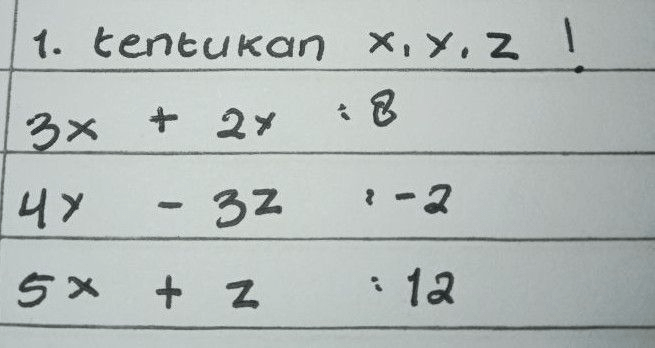 1. tentukan x, y, z !
3x + 2y : 8
4y - 3z : -2
5x + z : 12